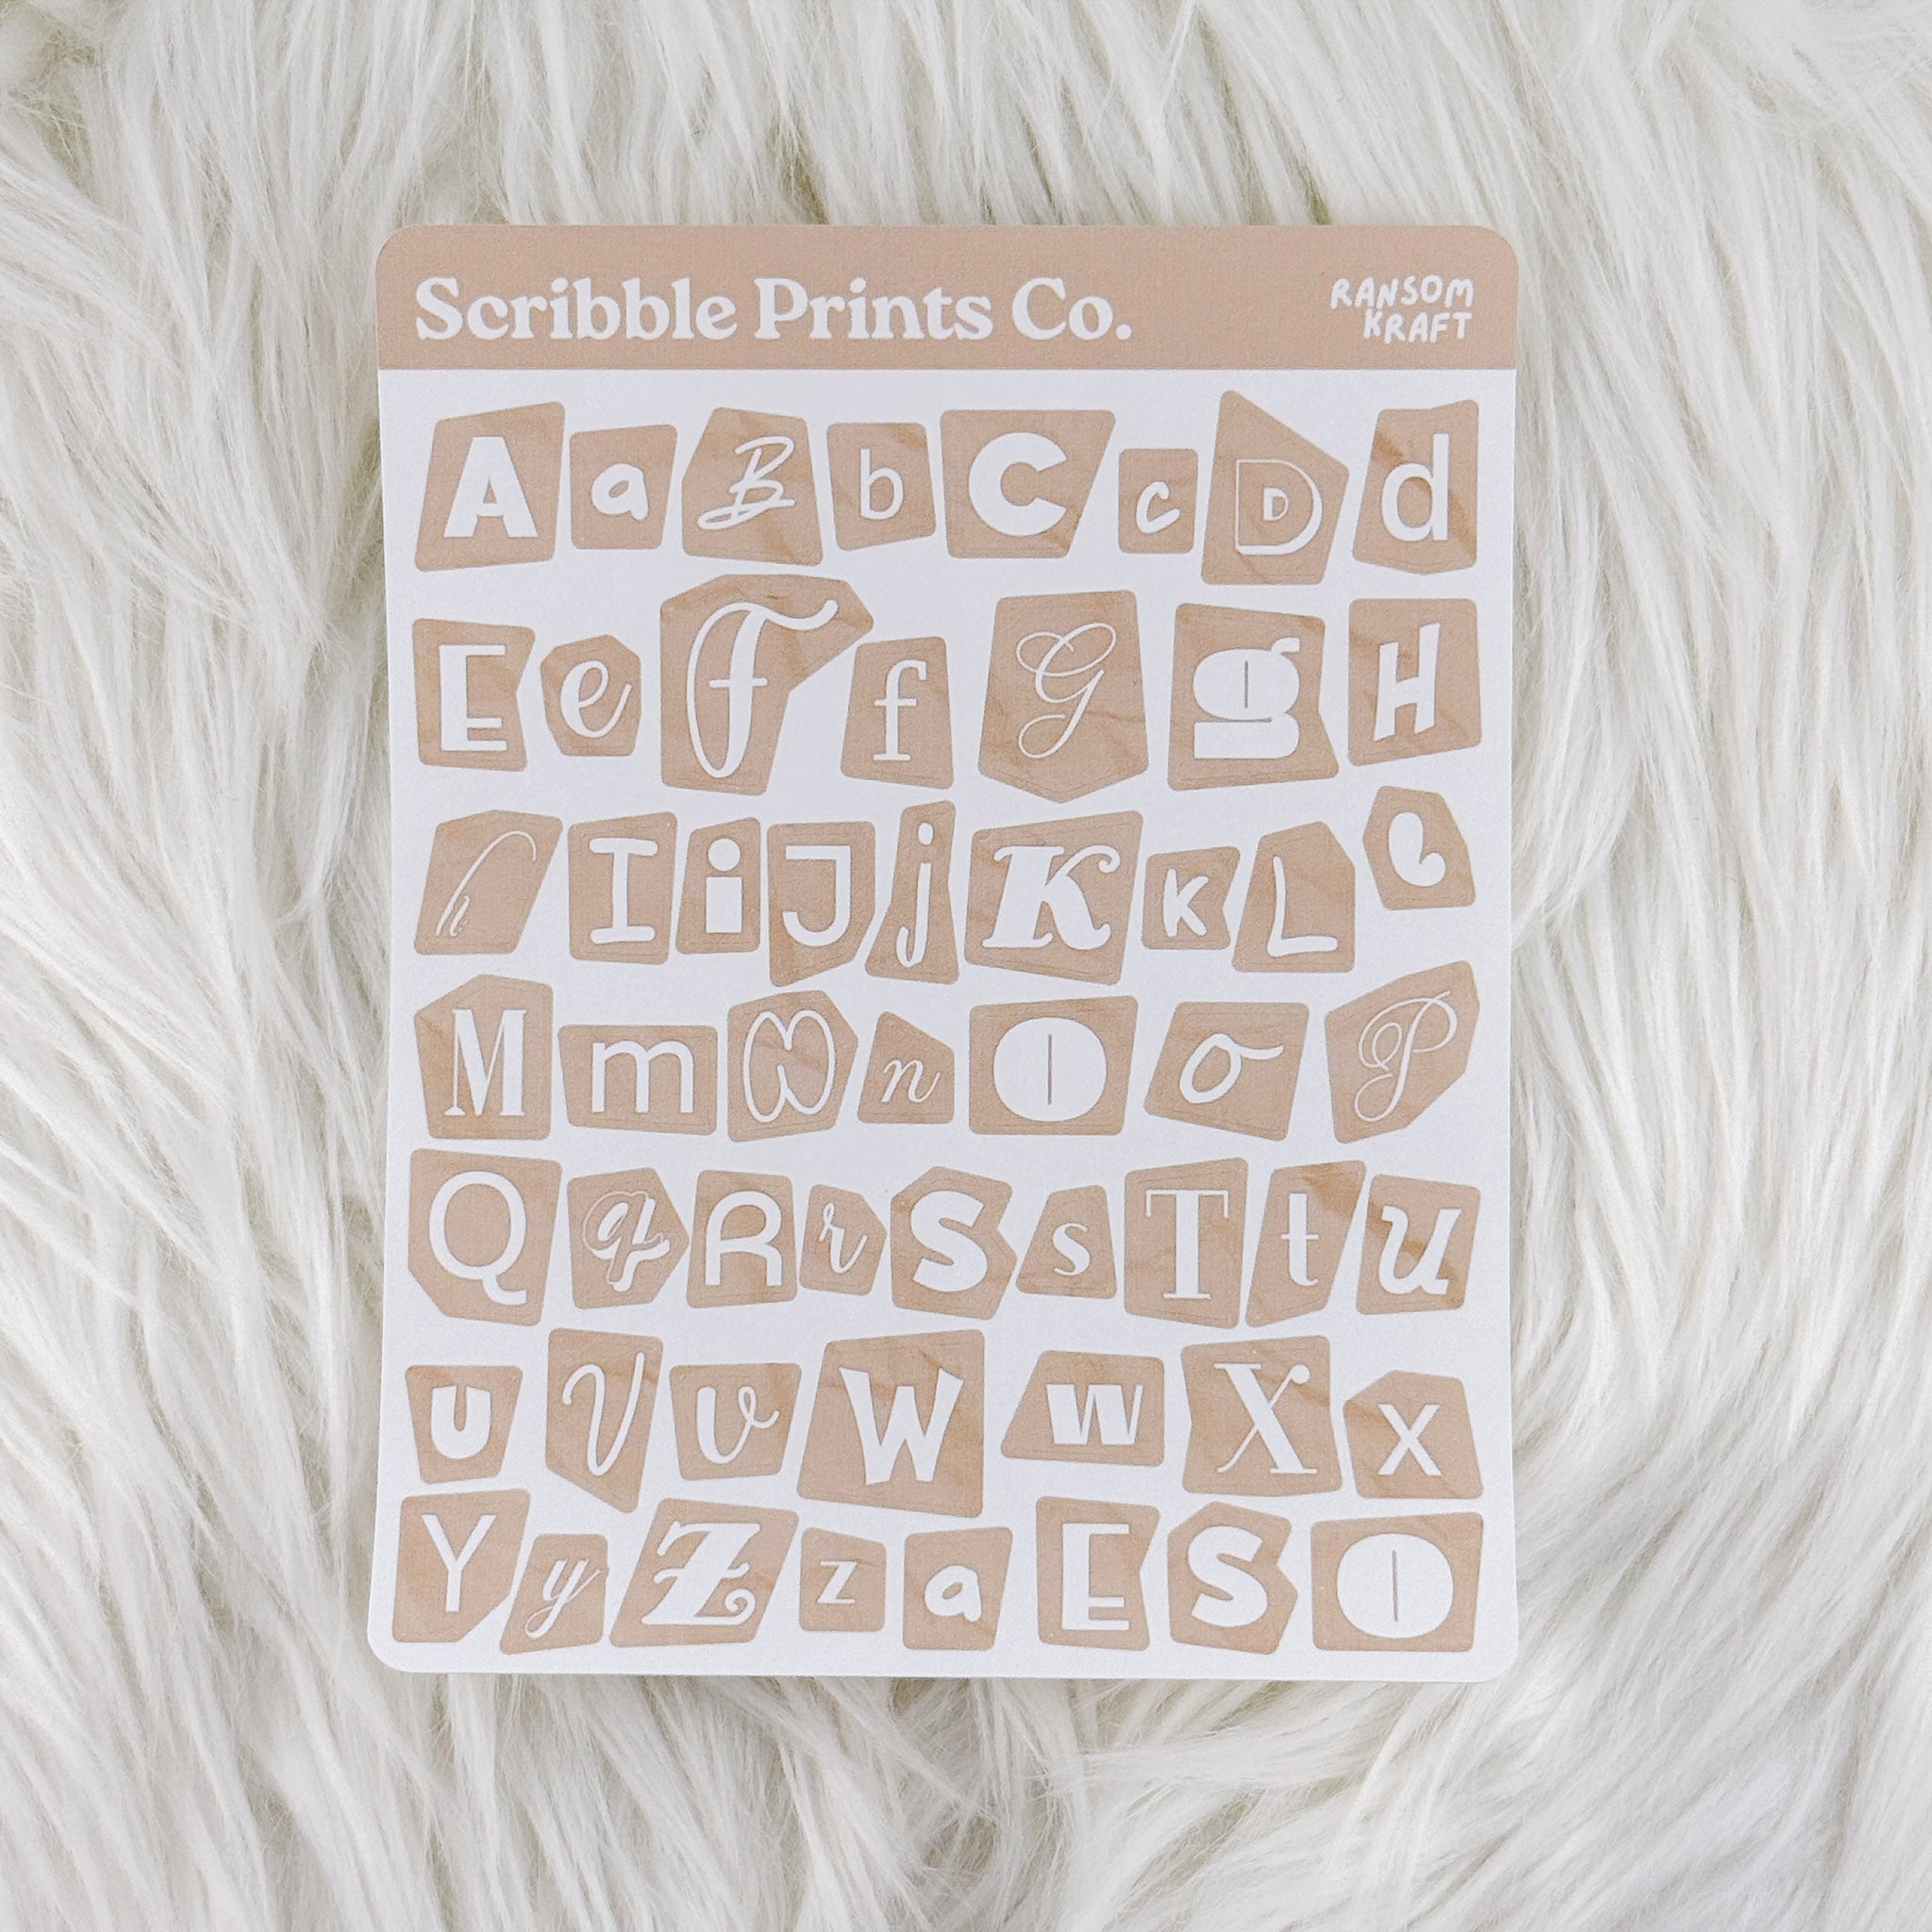 Scribble Prints Co.
RANSOM
KRAFT
A a B b C c D d
E e F f G g H
h I i J j K k L l
M m N n O o P
Q q R r S s T t U
u V v W w X x
Y y Z z a E S O